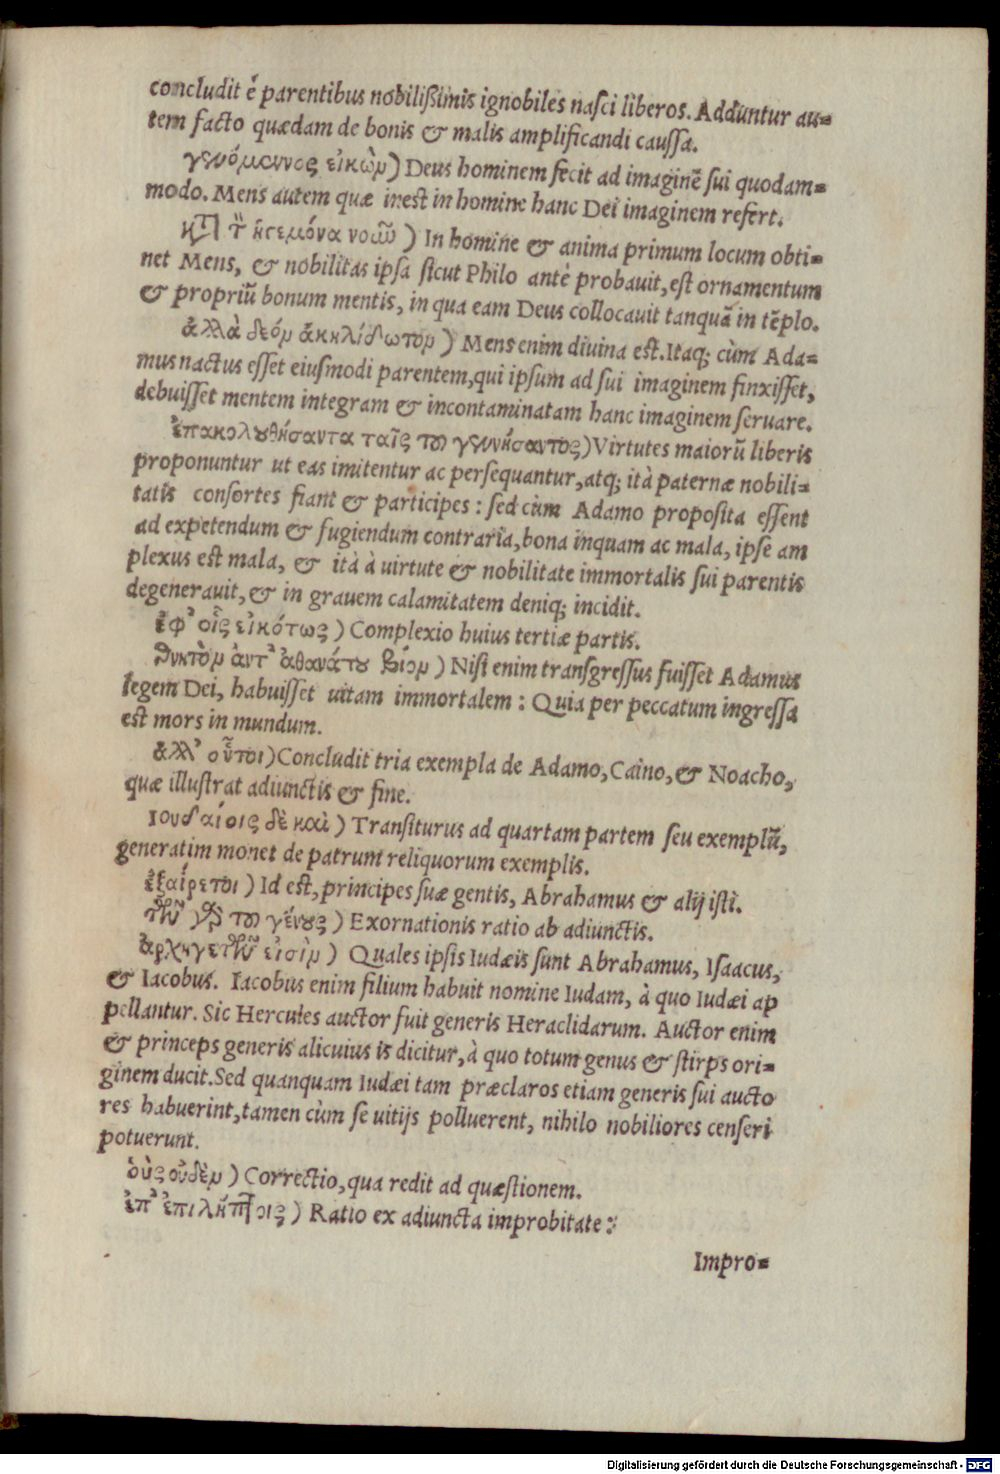 concludit é parentibus nobilißimis ignobiles nasci liberos. Adduntur au=
tem facto quædam de bonis & malis amplificandi caussa.
γενόμεννος εἰκὼν) Deus hominem fecit ad imaginē sui quodam=
modo. Mens autem quæ inest in homine hanc Dei imaginem refert.
ἡγεμόνα νοῦν) In homine & anima primum locum obti=
net Mens, & nobilitas ipsa sicut Philo antè probauit, est ornamentum
& propriū bonum mentis, in qua eam Deus collocauit tanquā in tēplo.
ἀλλὰ δεόν ἀκηλίδωτον) Mens enim diuina est. Itaq; cùm Ada=
mus nactus esset eiusmodi parentem, qui ipsum ad sui imaginem finxisset,
debuisset mentem integram & incontaminatam hanc imaginem seruare.
ἐπακολουθήσαντα ταῖς τοῦ γεννήσαντος) Virtutes maiorū liberis
proponuntur ut eas imitentur ac persequantur, atq; ità paternæ nobili=
tatis consortes fiant & participes: sed cùm Adamo proposita essent
ad expetendum & fugiendum contraria, bona inquam ac mala, ipse am
plexus est mala, & ità à uirtute & nobilitate immortalis sui parentis
degenerauit, & in grauem calamitatem deniq; incidit.
ἐφ' οἷς εἰκότως) Complexio huius tertiæ partis.
θνητὸν ἀντ' ἀθανάτου βίον) Nisi enim transgressus fuisset Adamus
legem Dei, habuisset uitam immortalem: Quia per peccatum ingressa
est mors in mundum.
ἀλλ' οὗτοι) Concludit tria exempla de Adamo, Caino, & Noacho,
quæ illustrat adiunctis & fine.
Ιουδαίοις δὲ καὶ) Transiturus ad quartam partem seu exemplū,
generatim monet de patrum reliquorum exemplis.
ἐξαίρετοι) Id est, principes suæ gentis, Abrahamus & alij isti.
τῶν τοῦ γένους) Exornationis ratio ab adiunctis.
ἀρχηγετῶν εἰσὶν) Quales ipsis Iudæis sunt Abrahamus, Isaacus,
& Iacobus. Iacobus enim filium habuit nomine Iudam, à quo Iudæi ap
pellantur. Sic Hercules auctor fuit generis Heraclidarum. Auctor enim
& princeps generis alicuius is dicitur, à quo totum genus & stirps ori=
ginem ducit. Sed quanquam Iudæi tam præclaros etiam generis sui aucto
res habuerint, tamen cùm se uitijs polluerent, nihilo nobiliores censeri
potuerunt.
οὓς οὐδὲν) Correctio, qua redit ad quæstionem.
ἐπ' ἐπιλήπτοις) Ratio ex adiuncta improbitate:
Impro=
Digitalisierung gefördert durch die Deutsche Forschungsgemeinschaft - DFG